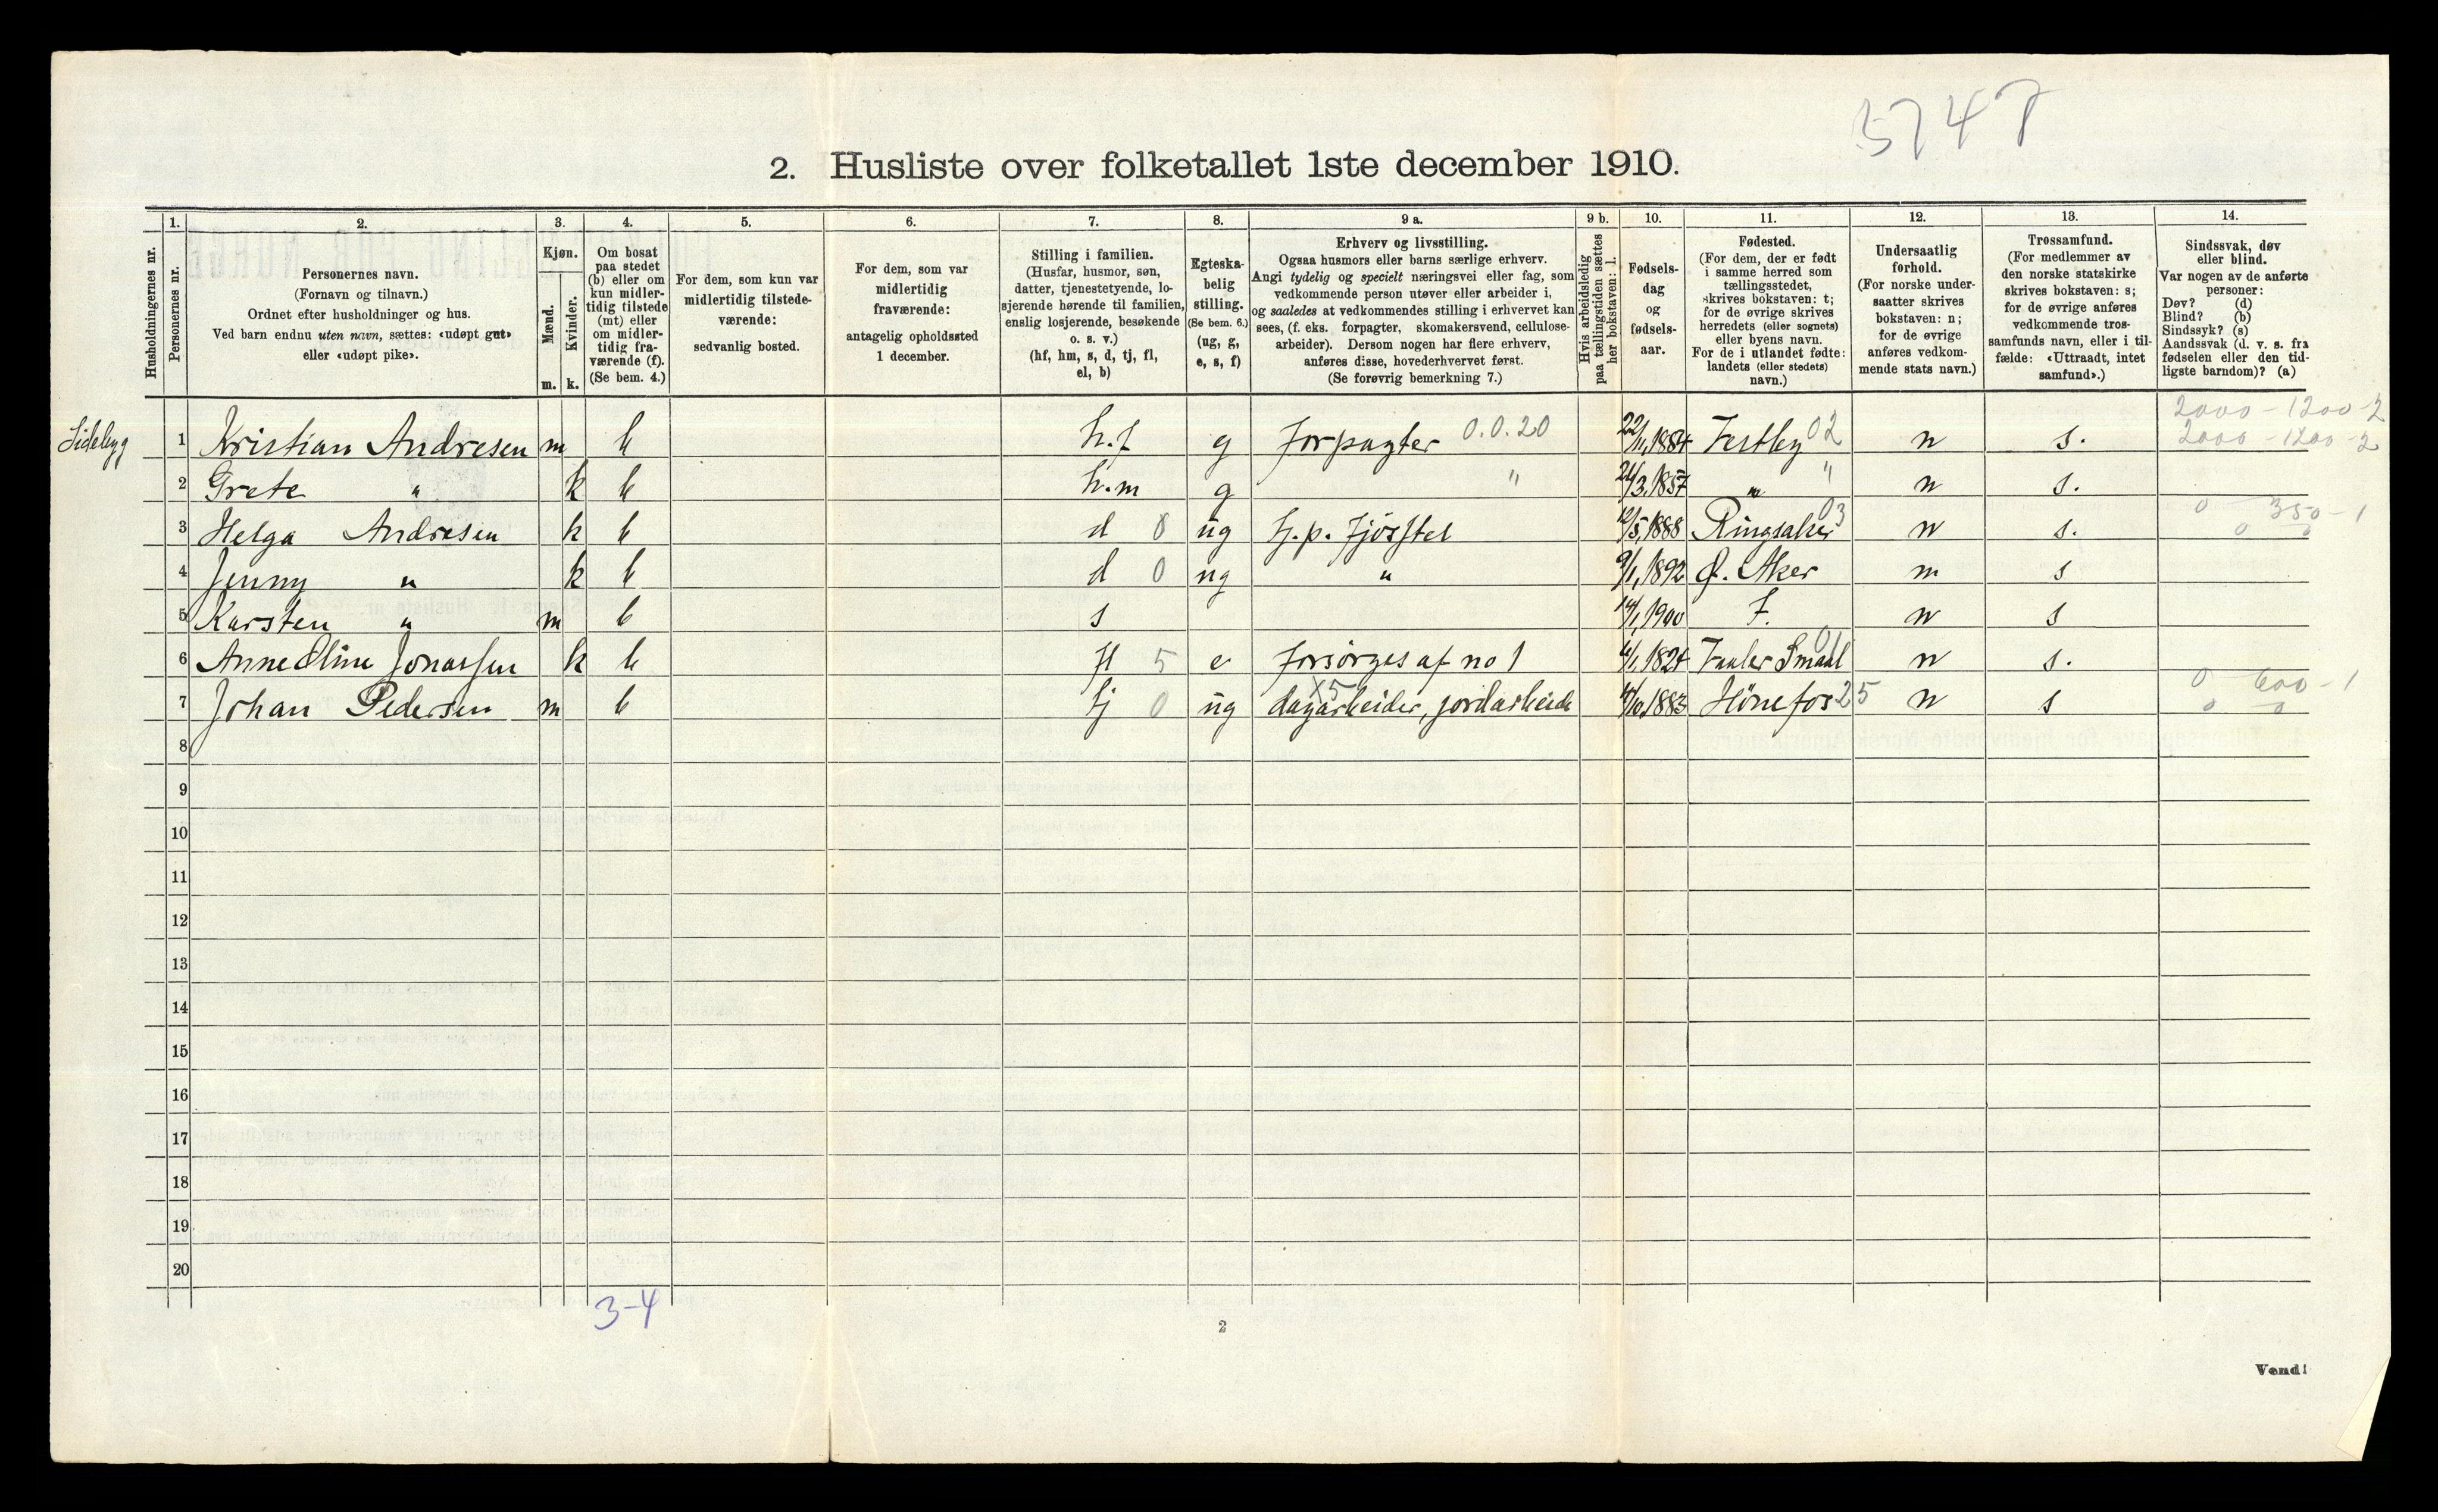 5747
2. Husliste over folketallet 1ste december 1910.
Husholdningernes nr.
1.
Personernes nr.
2.
Personernes navn.
(Fornavn og tilnavn.)
Ordnet efter husholdninger og hus.
Ved barn endnu uten navn, sættes: «udøpt gut»
eller «udøpt pike».
3.
Kjøn.
Mænd.
Kvinder.
m. k.
4.
Om bosat
paa stedet
(b) eller om
kun midler-
tidig tilstede
(mt) eller
om midler-
tidig fra-
værende (f).
(Se bem. 4.)
5.
For dem, som kun var
midlertidig tilstede-
værende:
sedvanlig bosted.
6.
For dem, som var
midlertidig
fraværende:
antagelig opholdssted
1 december.
7.
Stilling i familien.
(Husfar, husmor, søn,
datter, tjenestetyende, lo-
sjerende hørende til familien,
enslig losjerende, besøkende
o. s. v.)
(hf, hm, s, d, tj, fl,
el, b)
8.
Egteska-
belig
stilling.
(Se bem. 6.)
(ug, g,
e, s, f)
9 a.
Erhverv og livsstilling.
Ogsaa husmors eller barns særlige erhverv.
Angi tydelig og specielt næringsvei eller fag, som
vedkommende person utøver eller arbeider i,
og saaledes at vedkommendes stilling i erhvervet kan
sees, (f. eks. forpagter, skomakersvend, cellulose-
arbeider). Dersom nogen har flere erhverv,
anføres disse, hovederhvervet først.
(Se forøvrig bemerkning 7.)
9 b.
Hvis arbeidsledig
paa tællingstiden sættes
her bokstaven: l.
10.
Fødsels-
dag
og
fødsels-
aar.
11.
Fødested.
(For dem, der er født
i samme herred som
tællingsstedet,
skrives bokstaven: t;
for de øvrige skrives
herredets (eller sognets)
eller byens navn.
For de i utlandet fødte:
landets (eller stedets)
navn.)
12.
Undersaatlig
forhold.
(For norske under-
saatter skrives
bokstaven: n;
for de øvrige
anføres vedkom-
mende stats navn.)
13.
Trossamfund.
(For medlemmer av
den norske statskirke
skrives bokstaven: s;
for de øvrige anføres
vedkommende tros-
samfunds navn, eller i til-
fælde: «Uttraadt, intet
samfund».)
14.
Sindssvak, døv
eller blind.
Var nogen av de anførte
personer:
Døv? (d)
Blind? (b)
Sindssyk? (s)
Aandssvak (d. v. s. fra
fødselen eller den tid-
ligste barndom)? (a)
2000 - 1200 - 2
Sidebyg 1 Kristian Andresen m b h.f g forpagter 0.0.20 22/11,1854 Vestby 02 n s. 2000 - 1200 - 2
2 Grete " k b h.m g " 1857 " " n s.
0 350 - 1
3 Helga Andresen k b d 8 ug h.p. fjøsstel 12/5,1888 Ringsaker 03 n s. 0 0
4 Jenny " k b d 0 ug " 9/1,1892 Ø. Aker n s
5 Karsten " m b s 14/1,1900 t. n s
6 Anne Oline Jonassen k b fl 5 e forsørges af no 1 1824 Vaaler Smaal 01 n s.
0 600 - 1
7 Johan Pedersen m b tj 0 ug dagarbeider, jordarbeide x5 4/10,1883 Hönefos 25 n s 0 0
8
9
10
11
12
13
14
15
16
17
18
19
20
3-4
2
Vend!